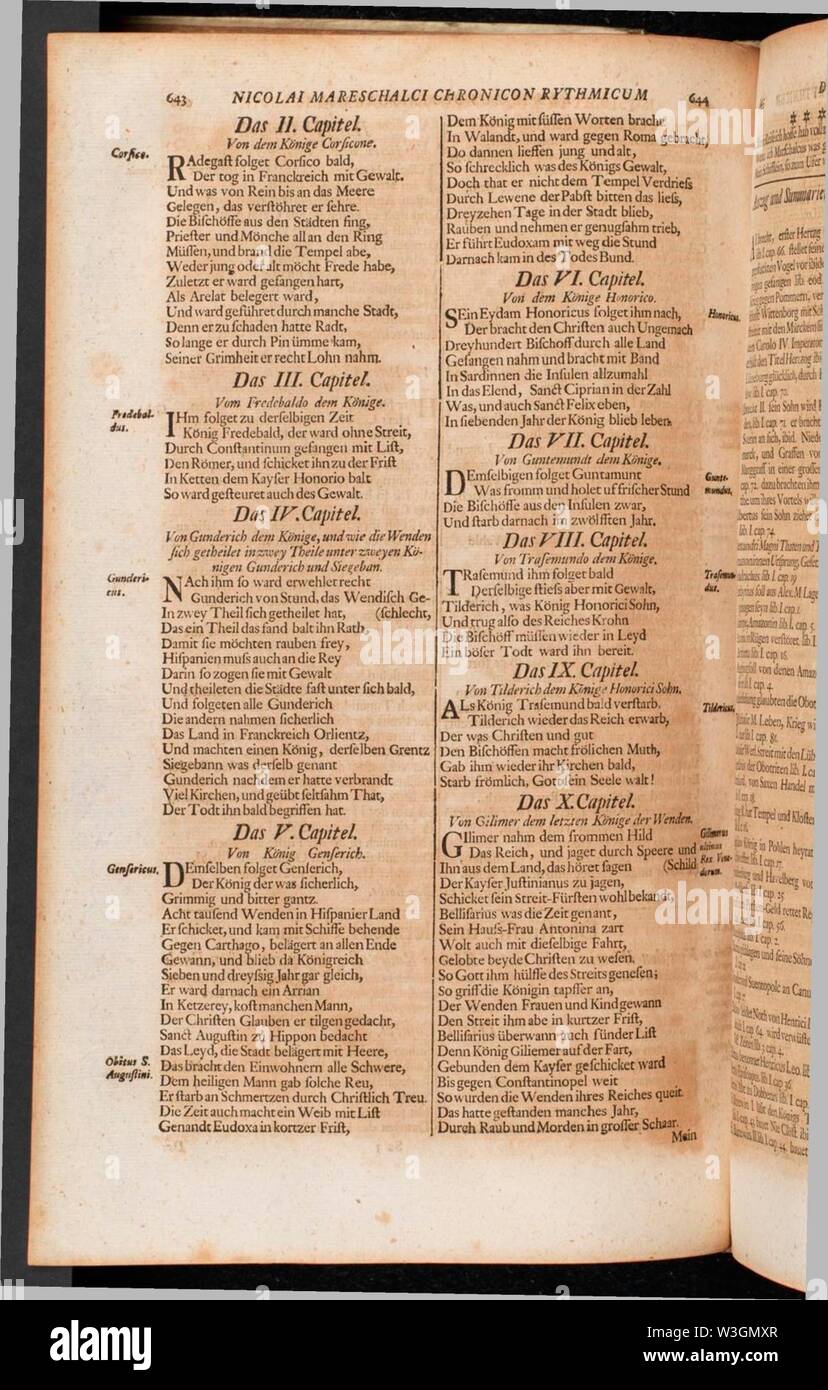 643 NICOLAI MARESCHALCI CHRONICON RYTHMICUM 644
Das II. Capitel.
Von dem Könige Corsicone.
Corsico.
RAdegast folget Corsico bald,
Der tog in Franckreich mit Gewalt.
Und was von Rein bis an das Meere
Gelegen, das verstöhret er sehre.
Die Bischöffe aus den Städten fing,
Priester und Mönche all an den Ring
Müssen, und brand die Tempel abe,
Weder jung oder alt möcht Frede habe,
Zuletzt er ward gefangen hart,
Als Arelat belegert ward,
Und ward geführet durch manche Stadt,
Denn er zu schaden hatte Radt,
So lange er durch Pin ümme kam,
Seiner Grimheit er recht Lohn nahm.
Das III. Capitel.
Vom Fredebaldo dem Könige.
Fredebal-
dus.
IHm folget zu derselbigen Zeit
König Fredebald, der ward ohne Streit,
Durch Constantinum gefangen mit List,
Den Römer, und schicket ihn zu der Frist
In Ketten dem Kayser Honorio balt
So ward gesteuret auch des Gewalt.
Das IV. Capitel.
Von Gunderich dem Könige, und wie die Wenden
sich getheilet in zwey Theile unter zweyen Kö-
nigen Gunderich und Siegeban.
Gunderi-
cus.
NAch ihm so ward erwehlet recht
Gunderich von Stund, das Wendisch Ge-
In zwey Theil sich getheilet hat, (schlecht,
Das ein Theil das fand balt ihn Rath,
Damit sie möchten rauben frey,
Hispanien muss auch an die Rey
Darin so zogen sie mit Gewalt
Und theileten die Städte fast unter sich bald,
Und folgeten alle Gunderich
Die andern nahmen sicherlich
Das Land in Franckreich Orlientz,
Und machten einen König, derselben Grentz
Siegebann was derselb genant
Gunderich nach dem er hatte verbrandt
Viel Kirchen, und geübt seltsahm That,
Der Todt ihn bald begriffen hat.
Das V. Capitel.
Von König Genserich.
Gensericus.
DEmselben folget Genserich,
Der König der was sicherlich,
Grimmig und bitter gantz.
Acht tausend Wenden in Hispanier Land
Er schicket, und kam mit Schiffe behende
Gegen Carthago, belägert an allen Ende
Gewann, und blieb da Königreich
Sieben und dreyssig Jahr gar gleich,
Er ward darnach ein Arrian
In Ketzerey, kost manchen Mann,
Der Christen Glauben er tilgen gedacht,
Sanct Augustin zu Hippon bedacht
Das Leyd, die Stadt belägert mit Heere,
Obitus S.
Augustini.
Das bracht den Einwohnern alle Schwere,
Dem heiligen Mann gab solche Reu,
Er starb an Schmertzen durch Christlich Treu.
Die Zeit auch macht ein Weib mit List
Genandt Eudoxa in kortzer Frist,
Dem König mit süssen Worten brachte
In Walandt, und ward gegen Roma gebracht,
Do dannen liessen jung und alt,
So schrecklich was des Königs Gewalt,
Doch that er nicht dem Tempel Verdriess
Durch Lewene der Pabst bitten das liess,
Dreyzehen Tage in der Stadt blieb,
Rauben und nehmen er genugsahm trieb,
Er führt Eudoxam mit weg die Stund
Darnach kam in des Todes Bund.
Das VI. Capitel.
Von dem Könige Honorico.
Honoricus.
SEin Eydam Honoricus folget ihm nach,
Der bracht den Christen auch Ungemach
Dreyhundert Bischoff durch alle Land
Gefangen nahm und bracht mit Band
In Sardinnen die Insulen allzumahl
In das Elend, Sanct Ciprian in der Zahl
Was, und auch Sanct Felix eben,
In siebenden Jahr der König blieb leben.
Das VII. Capitel.
Von Guntemundt dem Könige.
Gunte-
mundus.
DEmselbigen folget Guntamunt
Was fromm und holet uf frischer Stund
Die Bischöffe aus den Insulen zwar,
Und starb darnach im zwölfften Jahr.
Das VIII. Capitel.
Von Trasemundo dem Könige.
Trasemun-
dus.
TRasemund ihm folget bald
Derselbige stiess aber mit Gewalt,
Tilderich, was König Honorici Sohn,
Und trug also des Reiches Krohn
Die Bischöff müssen wieder in Leyd
Ein böser Todt ward ihn bereit.
Das IX. Capitel.
Von Tilderich dem Könige Honorici Sohn.
Tildericus.
ALs König Trasemund bald verstarb,
Tilderich wieder das Reich erwarb,
Der was Christen und gut
Den Bischöffen macht frölichen Muth,
Gab ihm wieder ihr Kirchen bald,
Starb frömlich, Gott sein Seele walt!
Das X. Capitel.
Von Gilimer dem letzten Könige der Wenden.
Gilimerus
ultimus
Rex Vene-
dorum.
GIlimer nahm dem frommen Hild
Das Reich, und jaget durch Speere und
Ihn aus dem Land, das höret sagen (Schild
Der Kayser Justinianus zu jagen,
Schicket sein Streit-Fürsten wohl bekandt,
Bellisarius was die Zeit genant,
Sein Hauss-Frau Antonina zart
Wolt auch mit dieselbige Fahrt,
Gelobte beyde Christen zu wesen.
So Gott ihm hülffe des Streits genesen;
So griff die Königin tapffer an,
Der Wenden Frauen und Kind gewann
Den Streit ihm abe in kurtzer Frist,
Bellisarius überwann auch sünder List
Denn König Giliemer auf der Fart,
Gebunden dem Kayser geschicket ward
Bis gegen Constantinopel weit
So wurden die Wenden ihres Reiches queit.
Das hatte gestanden manches Jahr,
Durch Raub und Morden in grosser Schaar.
Mein
alamy
Image ID: W3GMXR
www.alamy.com